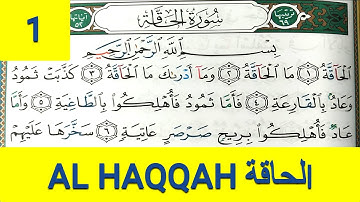 1
ترتيبها ٦٩
سُورَةُ الْحَاقَّةِ
آياتها ٥٢
بِسْمِ اللَّهِ الرَّحْمَٰنِ الرَّحِيمِ
الْحَاقَّةُ ① مَا الْحَاقَّةُ ② وَمَا أَدْرَاكَ مَا الْحَاقَّةُ ③ كَذَّبَتْ ثَمُودُ
وَعَادٌ بِالْقَارِعَةِ ④ فَأَمَّا ثَمُودُ فَأُهْلِكُوا بِالطَّاغِيَةِ ⑤ وَأَمَّا
عَادٌ فَأُهْلِكُوا بِرِيحٍ صَرْصَرٍ عَاتِيَةٍ ⑥ سَخَّرَهَا عَلَيْهِمْ
AL HAQQAH الحاقة